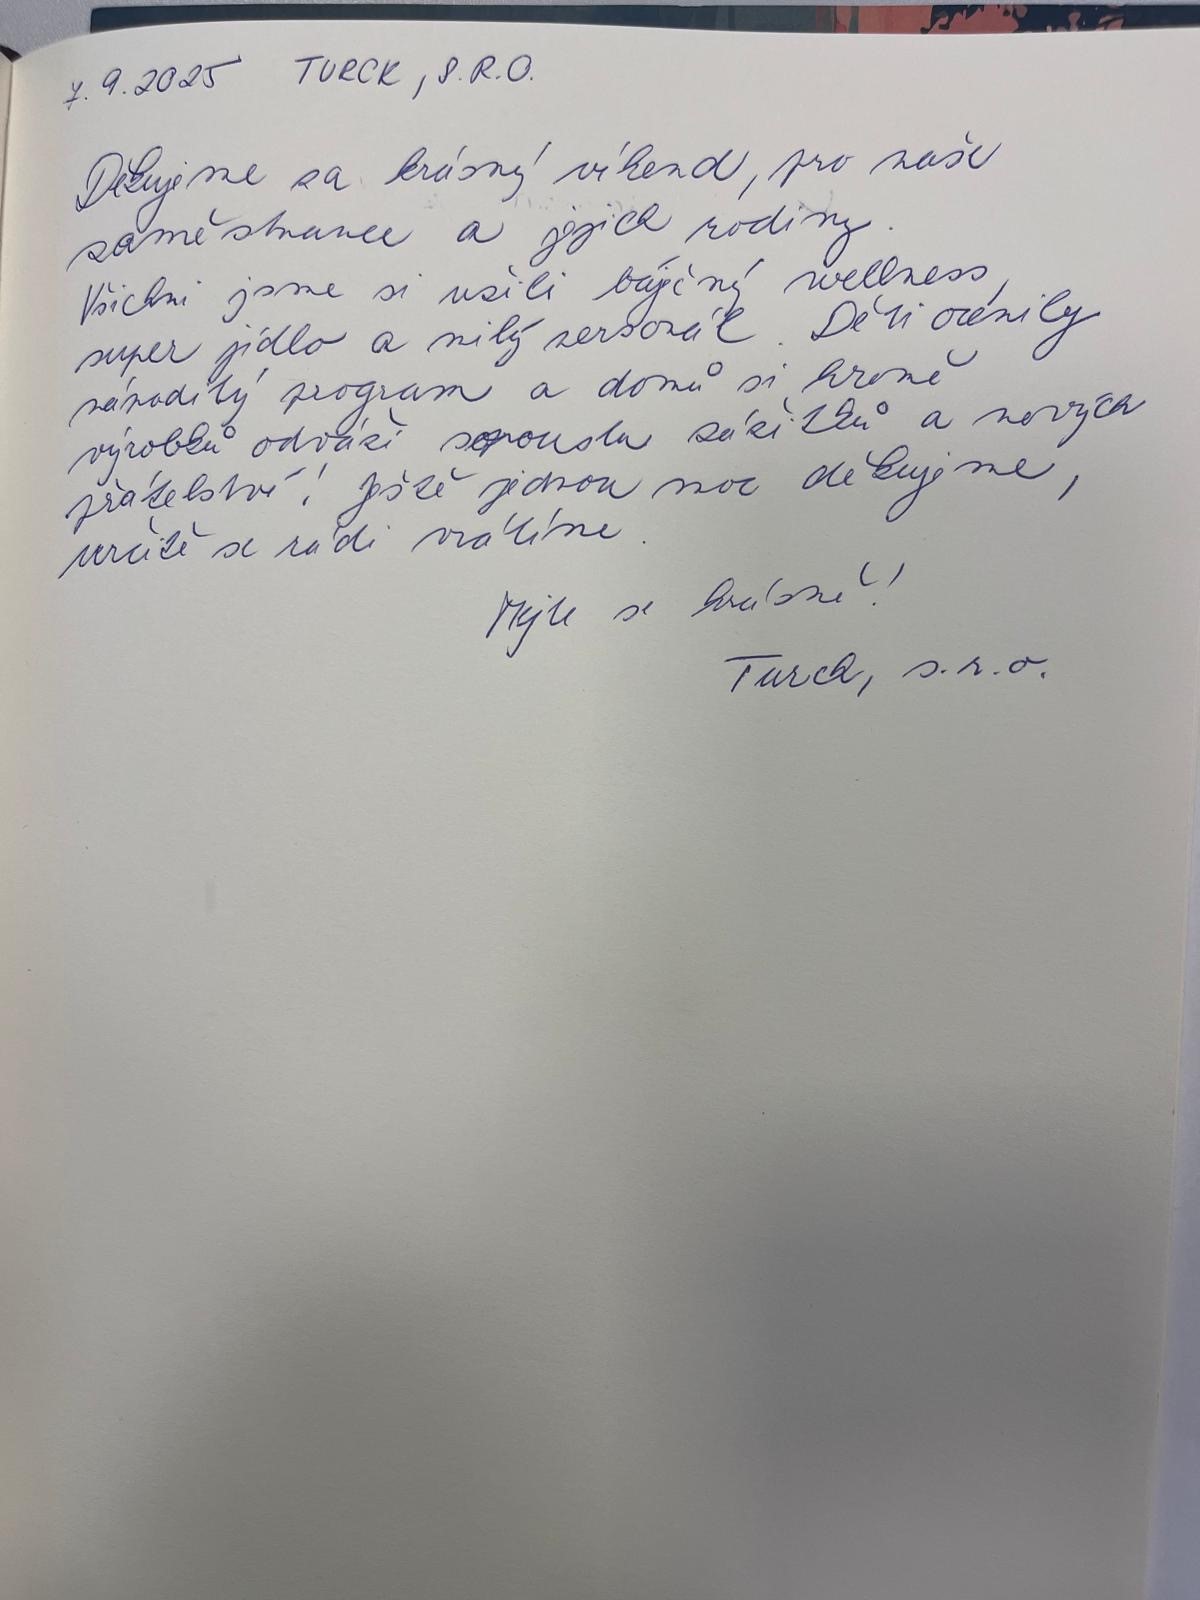 7.9.2025 TURCK, S.R.O.
Děkujeme za krásný víkend, pro naše
zaměstnance a jejich rodiny.
Všichni jsme si užili báječný wellness,
super jídlo a milý personál. Děti ocenily
nápaditý program a domů si kromě
výrobků odváží spoustu zážitků a nových
přátelství! Ještě jednou moc děkujeme,
určitě se rádi vrátíme.
Mějte se krásně!
Turck, s.r.o.